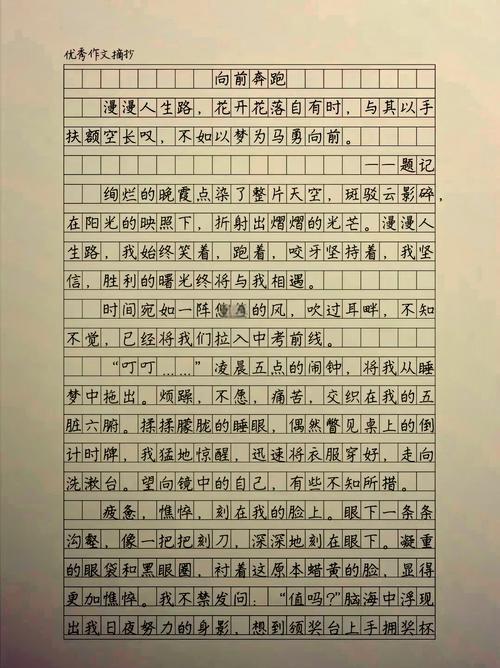 优秀作文摘抄
向前奔跑
漫漫人生路，花开花落自有时，与其以手
扶额空长叹，不如以梦为马勇向前。
——题记
绚烂的晚霞点染了整片天空，斑驳云影碎，
在阳光的映照下，折射出熠熠的光芒。漫漫人
生路，我始终笑着，跑着，咬牙坚持着，我坚
信，胜利的曙光终将与我相遇。
时间宛如一阵的风，吹过耳畔，不知
不觉，已经将我们拉入中考前线。
“叮叮……”凌晨五点的闹钟，将我从睡
梦中拖出。烦躁，不愿，痛苦，交织在我的五
脏六腑。揉揉朦胧的睡眼，偶然瞥见桌上的倒
计时牌，我猛地惊醒，迅速将衣服穿好，走向
洗漱台。望向镜中的自己，有些不知所措。
疲惫，憔悴，刻在我的脸上。眼下一条条
沟壑，像一把把刻刀，深深地刻在眼下。凝重
的眼袋和黑眼圈，衬着这原本蜡黄的脸，显得
更加憔悴。我不禁发问：“值吗？”脑海中浮现
出我日夜努力的身影，想到颁奖台上手拥奖杯